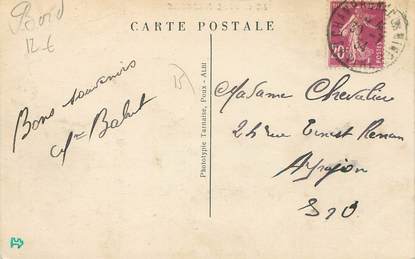 Bord
12 €
CARTE POSTALE
Bons souvenirs
Babut
Phototypie Tarnaise, Poux - ALBI
Madame Chevalier
24 rue Ernest Renan
Arpajon
S & O
20c
POSTES